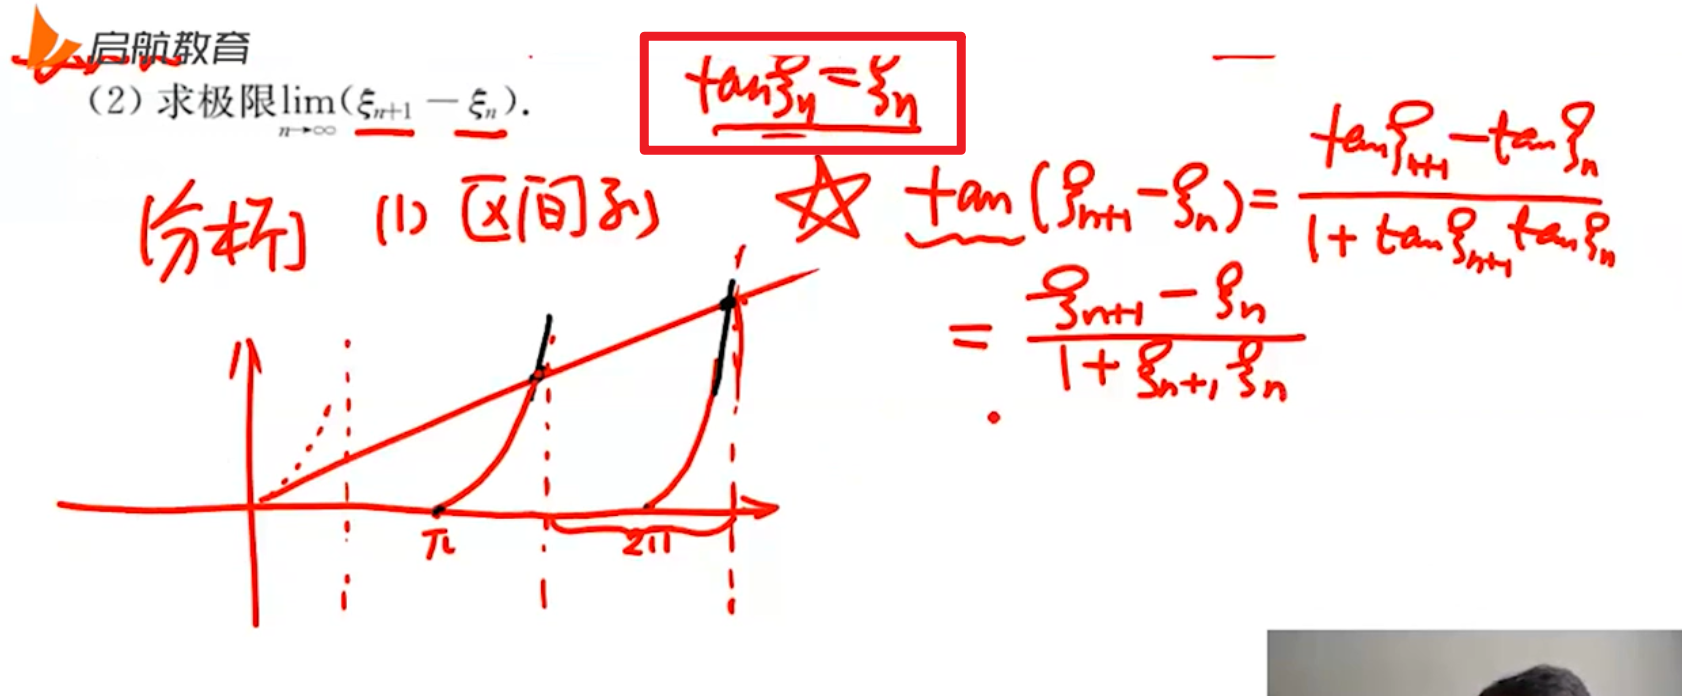 启航教育
(2) 求极限lim(ξn+1 − ξn).
n→∞
tanξn = ξn
[分析] (1) [区间列]
☆ tan(ξn+1 − ξn) = (tanξn+1 − tanξn) / (1 + tanξn+1 tanξn)
= (ξn+1 − ξn) / (1 + ξn+1 ξn)
π
2π